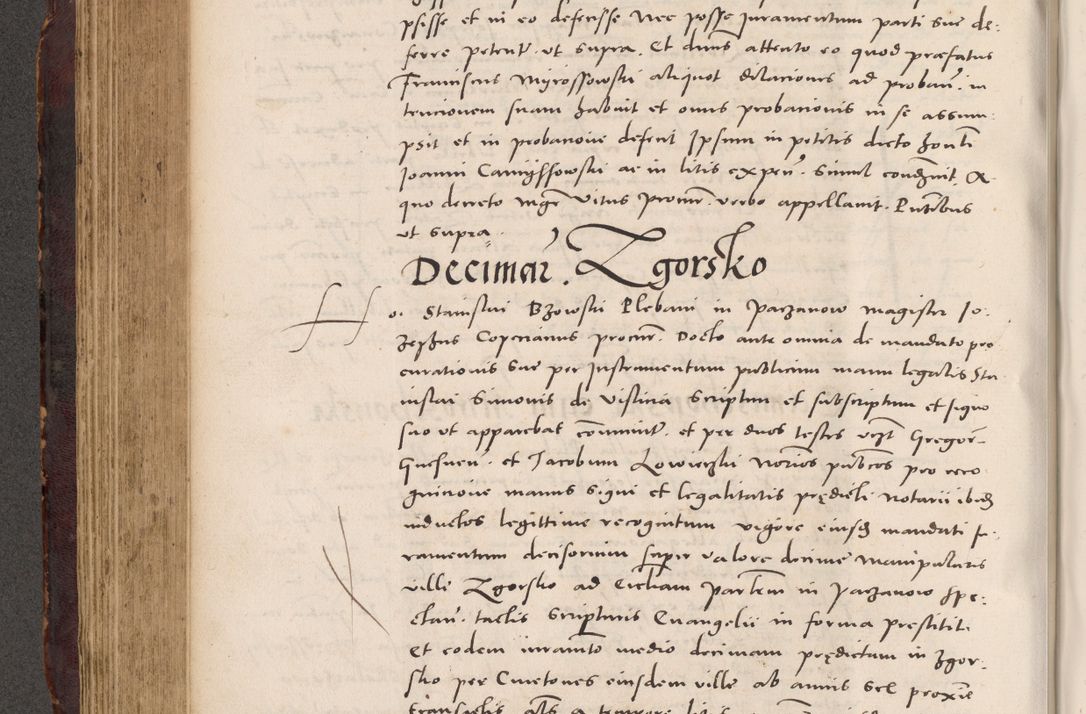 psisse et in eo defensse Nec posse Juramentum parti sue de:
ferre petent ut supra. Et dnus attento eo quod præfatus
Franciscus Myrossowski aliquot dilaciones ad proband. in
tencionem suam habuit et onus probacionis in se assum:
psit et in probacione defecit Ipsum in petitis dicto
Joanni ac in litis expen. Simul condemnit. A
quo decreto Mgr Vitus procur. verbo appellavit. Pntibus
ut supra.
Decimar. Zgorsko
Stanislai Bzowski Plebani in Parzanow magister Jo:
procur. Docto ante omnia de mandato pro
curationis sue per Instrumentum publicum manu legalis Sta
nislai Simonis de Vislicia Scriptum et subscriptum et signo
suo ut apparebat communit. et per duos testes Gregor.
et Jacobum Lowiczski Norios publicos pro reco
gnicione manus signi et legalitatis prędicti Notarii ibidem
inductos legittime recognitum vigore eiusdem mandati Ju:
ramentum decisorium super valore decime manipularis
ville Zgorsko ad Ecclesiam Parlem in Parzanow spe:
ctan. tactis Scripturis Evangelii in forma prestitit.
Et eodem iuramto medio decimam prędictam in Zgor:
sko per Cmetones eiusdem ville ab annis Sex proxie